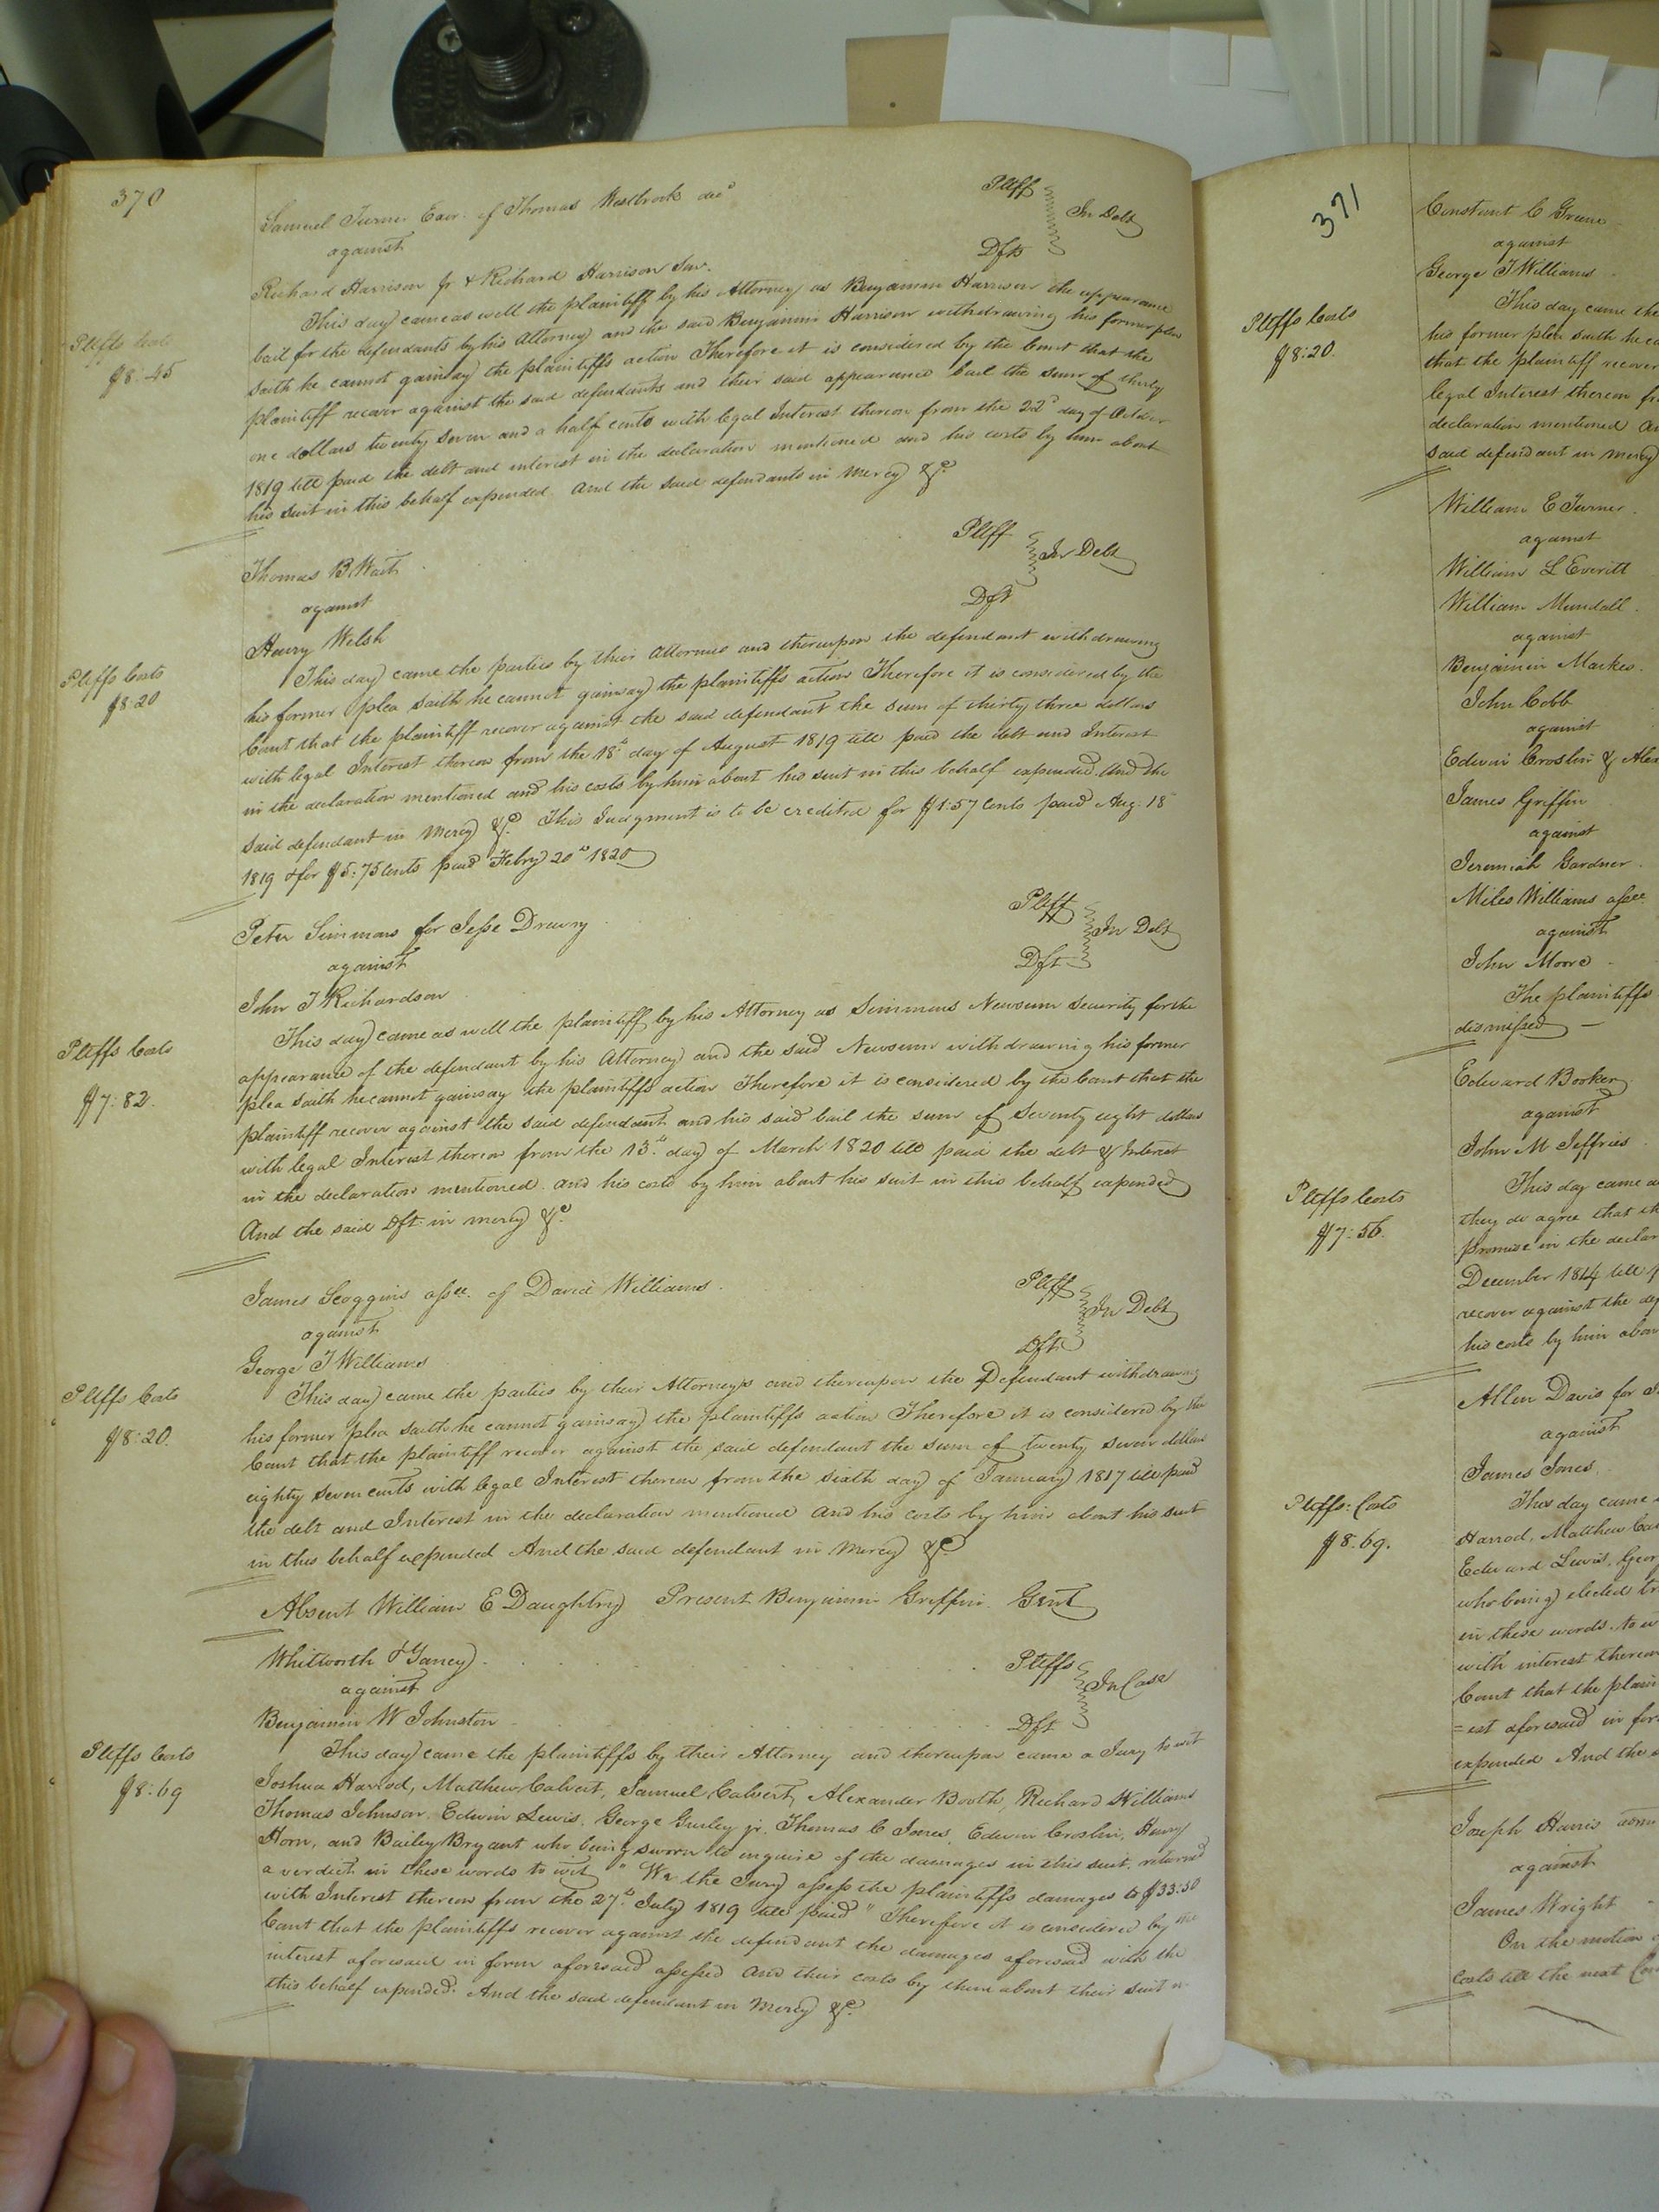 370
Samuel Turner Exor. of Thomas Westbrook decd
Pltff
against
In Debt
Dfts
Richard Harrison jr & Richard Harrison Snr.
This day came as well the plaintiff by his Attorney as Benjamin Harrison the appearance
Pltffs Costs
$8:45
bail for the defendants by his Attorney and the said Benjamin Harrison withdrawing his former plea
saith he cannot gainsay the plaintiffs action Therefore it is considered by the Court that the
plaintiff recover against the said defendants and their said appearance bail the sum of thirty
one dollars twenty seven and a half cents with legal Interest thereon from the 22d day of October
1819 till paid the debt and interest in the declaration mentioned and his costs by him about
his suit in this behalf expended. And the said defendants in Mercy &c.
Thomas B. Wait
Pltff
against
In Debt
Dft
Harry Welsh
This day came the parties by their Attornies and thereupon the defendant withdrawing
Pltffs Costs
$8:20
his former plea saith he cannot gainsay the plaintiffs action Therefore it is considered by the
Court that the plaintiff recover against the said defendant the sum of thirty three dollars
with legal Interest thereon from the 18th day of August 1819 till paid the debt and Interest
in the declaration mentioned and his costs by him about his suit in this behalf expended. And the
said defendant in Mercy &c. This Judgment is to be credited for $1:57 Cents paid Aug. 18
1819 & for $5:75 Cents paid Febry 20th 1820
Peter Simmons for Jesse Drewry
Pltff
against
In Debt
Dft
John T Richardson
This day came as well the plaintiff by his Attorney as Simmons Newsum security for the
Pltffs Costs
$7:82.
appearance of the defendant by his Attorney and the said Newsum withdrawing his former
plea saith he cannot gainsay the plaintiffs action Therefore it is considered by the Court that the
plaintiff recover against the said defendant and his said bail the sum of Seventy eight dollars
with legal Interest thereon from the 13th day of March 1820 till paid the debt & Interest
in the declaration mentioned. and his costs by him about his suit in this behalf expended
And the said Dft. in mercy &c.
James Scoggins assee. of David Williams
Pltff
against
In Debt
Dft
George T Williams
This day came the parties by their Attorneys and thereupon the Defendant withdrawing
Pltffs Costs
$8:20.
his former plea saith he cannot gainsay the plaintiffs action Therefore it is considered by the
Court that the plaintiff recover against the said defendant the sum of twenty seven dollars
eighty seven cents with legal Interest thereon from the sixth day of January 1817 till paid
the debt and Interest in the declaration mentioned and his costs by him about his suit
in this behalf expended And the said defendant in Mercy &c.
Absent William E Daughtry Present Benjamin Griffin. Gent
Whitworth & Yancey
Pltffs
against
In Case
Benjamin W Johnston
Dft
This day came the plaintiffs by their Attorney and thereupon came a Jury to wit
Pltffs Costs
$8:69
Joshua Harrod, Matthew Calvert, Samuel Calvert, Alexander Booth, Richard Williams
Thomas Johnson, Edwin Lewis, George Gurley jr. Thomas C Jones, Edwin Croslin, Henry
Horn, and Bailey Bryant who being sworn to inquire of the damages in this suit. returned
a verdict in these words to wit "We the Jury assess the plaintiffs damages to $33:50
with Interest thereon from the 27th July 1819 till paid" Therefore it is considered by the
Court that the plaintiffs recover against the defendant the damages aforesaid with the
interest aforesaid in form aforesaid assessed and their costs by them about their suit in
this behalf expended. And the said defendant in Mercy &c.
371
Constant C Greene
against
George T Williams
Pltffs Costs
$8:20.
This day came the
his former plea saith he
that the plaintiff recover
legal Interest thereon
declaration mentioned
said defendant in mercy
William E Turner
against
William L Everitt
William Mundall
against
Benjamin Markes
John Cobb
against
Edwin Croslin &
James Griffin
against
Jeremiah Gardner
Miles Williams assee
against
John Moore
The plaintiffs
dismissed
Edward Booker
against
John M Jeffries
This day came
Pltffs Costs
$7:56.
they do agree that
promise in the
December 1814 till
recover against the
his costs by him
Allen Davis for
against
James Jones
This day came
Pltffs: Costs
$8.69.
Harrod, Matthew
Edward Lewis,
who being elected
in these words. to
with interest
Court that the
=est aforesaid in
expended And the
Joseph Harris
against
James Wright
On the motion
Costs till the next